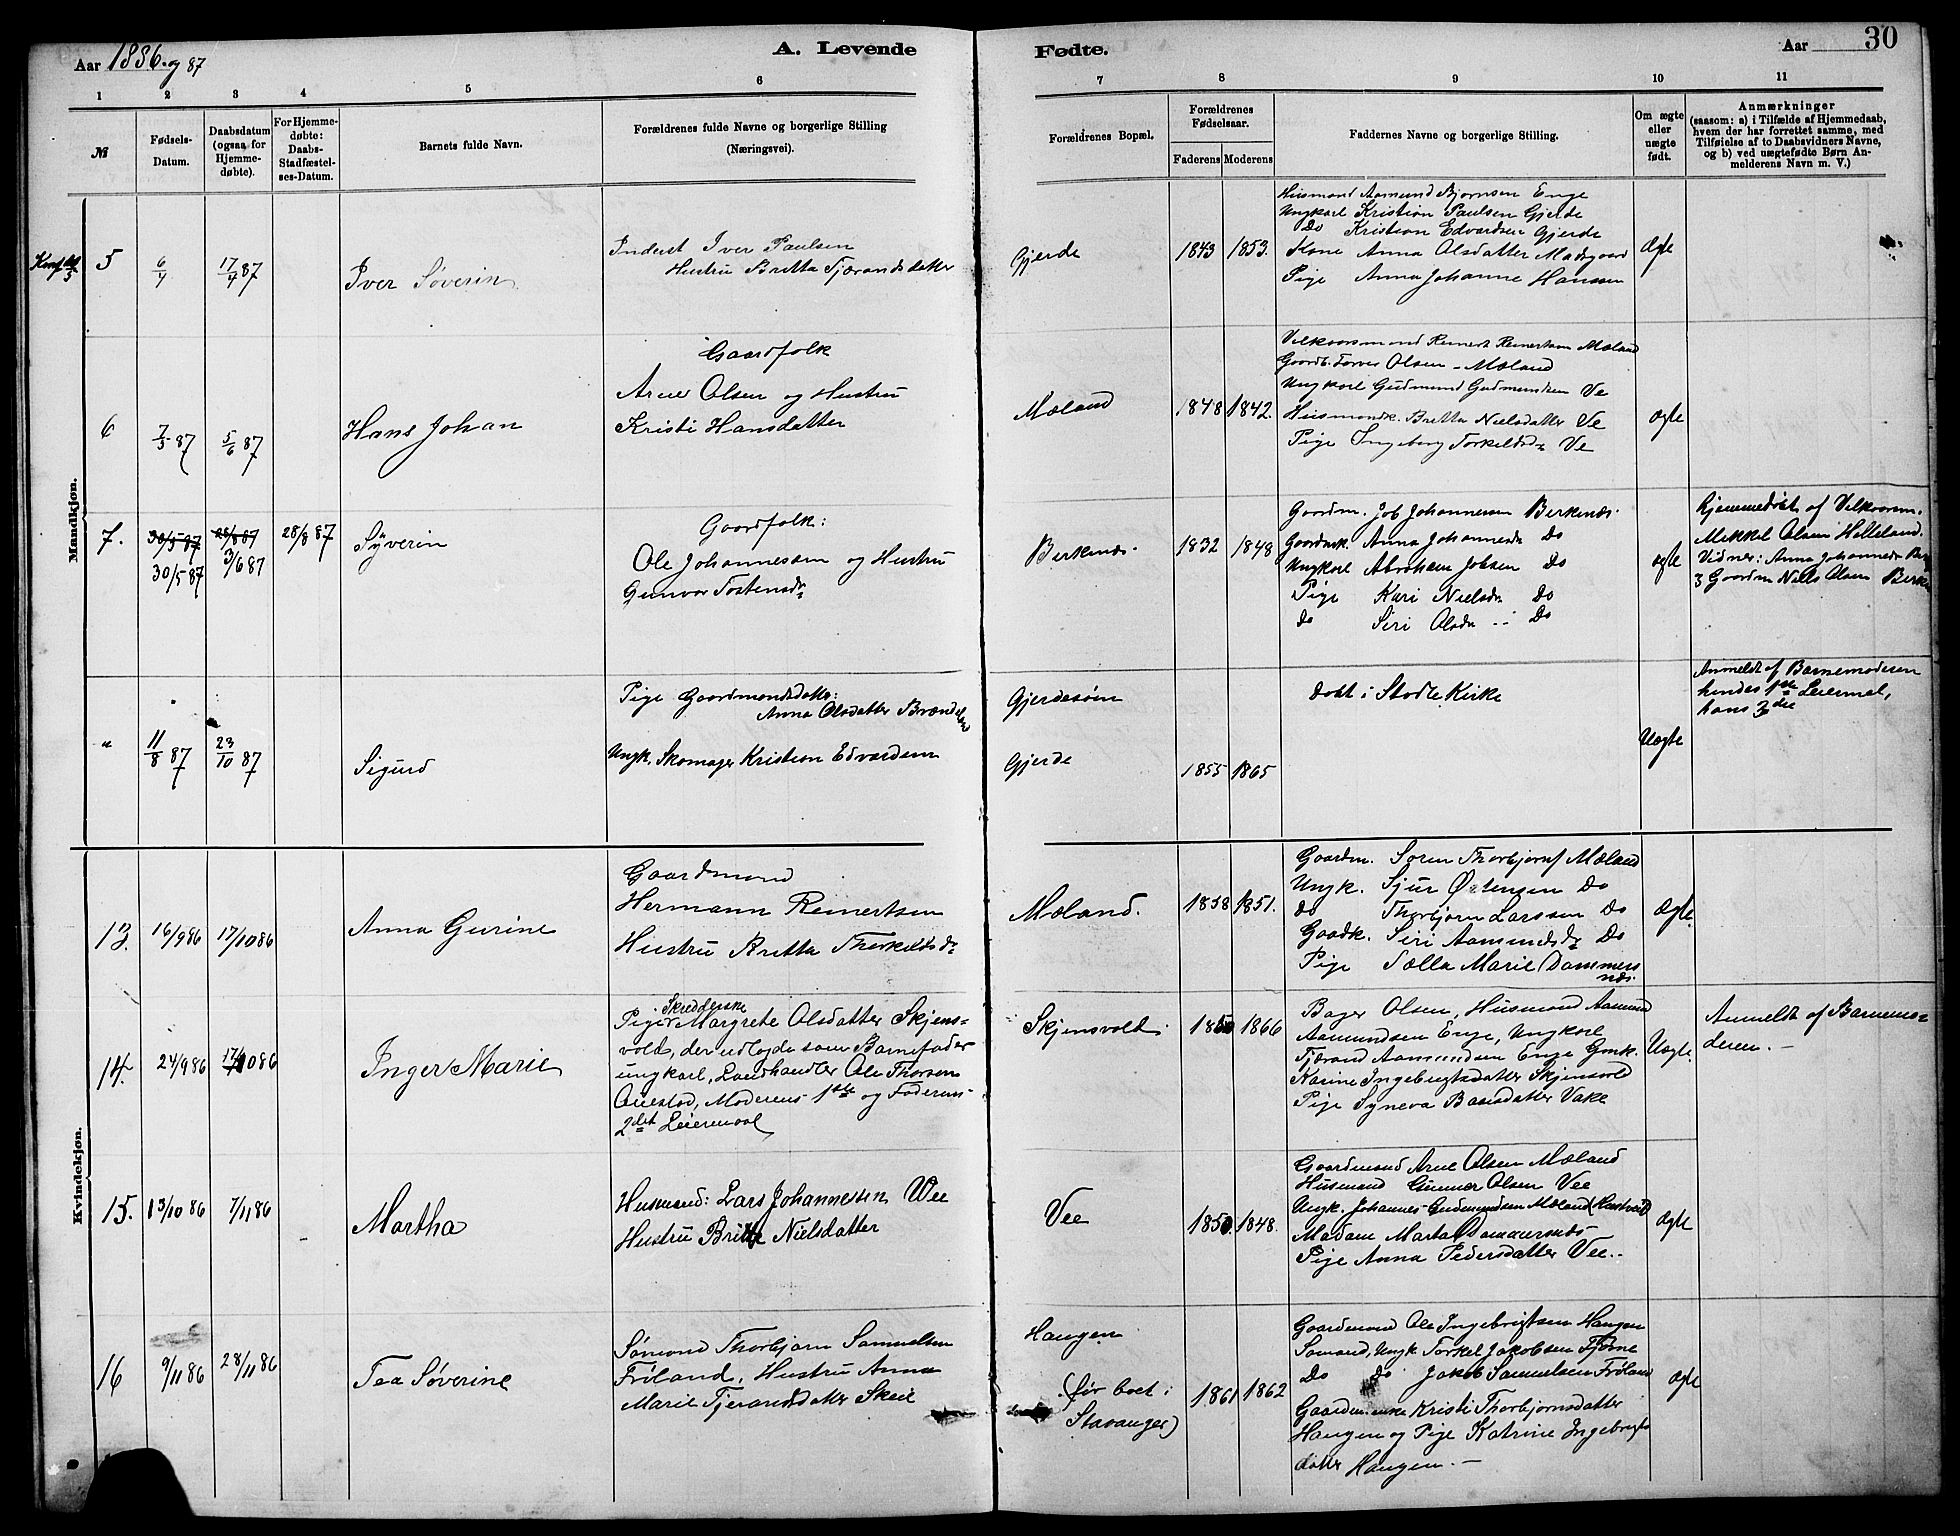 Aar 1886. og 87
A. Levende
Fødte.
Aar
30
1 2 3 4 5 6 7 8 9 10 11
№
Fødsels-
Datum.
Daabsdatum
(ogsaa for
Hjemme-
døbte).
For Hjemme-
døbte:
Daabs-
Stadfæstel-
ses-Datum.
Barnets fulde Navn.
Forældrenes fulde Navne og borgerlige Stilling
(Næringsvei).
Forældrenes Bopæl.
Forældrenes
Fødselsaar.
Faderens Moderens
Faddernes Navne og borgerlige Stilling.
Om ægte
eller
uægte
født.
Anmærkninger
(saasom: a) i Tilfælde af Hjemmedaab,
hvem der har forrettet samme, med
Tilføielse af to Daabsvidners Navne,
og b) ved uægtefødte Børn An-
melderens Navn m. V.)
Mandkjøn.
5
6/4
17/4 87
Iver Søverin
Inderst Iver Paulsen
Hustru Britta Tjærandsdatter
Gjerde
1843 1853.
Husmand Aamund Bjørnsen Enge
Ungkarl Kristian Paulsen Gjerde
Do Kristian Edvardsen Gjerde
Kone Anna Olsdatter Madsgaard
Pige Anna Johanne Hanssen
Ægte
6
7/3 87
5/6 87
Hans Johan
Gaardfolk
Arne Olsen og Hustru
Kristi Hansdatter
Mæland
1848 1842.
Vilkaarsmand Reinert Reinertsen Mæland
Gaardb. Torres Olsen - Mæland
Ungkarl Gudmund Gudmundsen Ve
Husmandk. Britta Nielsdatter Ve
Pige Ingeborg Torkeldsdr Ve
ægte
7.
30/5 87
28/8 87
28/8 87
30/5 87
3/6 87
Syverin
Gaardfolk:
Ole Johannessen og Hustru
Gunvor Tostensdr
Birkenæs
1832 1848
Gaardm. Job Johannessen Birkenæs.
Gaardmk. Anna Johannesdr Do
Ungkarl Abraham Jobsen Do
Pige Kari Nielsdr Do
do Siri Olsdr -:- Do
ægte
Hjemmedøbt af Vilkaarsm.
Mekkel Olsen Helleland.
Vidner: Anna Johannesdr
3 Gaardm Niels Olsen Birke
"
11/8 87
23/10 87
Sigurd
Pige Gaardmandsdatter:
Anna Olsdatter Brændeland
Ungk. Skomager Kristian Edvardsen
Gjerdesøen
Gjerde
1855 1865
Døbt i Stodle Kirke
Uægte
Anmeldt af Barnemoderen
hendes 1ste Leiermål,
hans 3die
Kvindekjøn.
13.
16/9 86
17/10 86
Anna Gurine
Gaardmand
Hermann Reinertsen
Hustru Britta Thorkildsdr
Mæland.
1858 1851.
Gaardm. Soren Thorbjørns Mæland
Ungk. Sjur Østensen Do
do Thorbjørn Larssen Do
Gaadk. Siri Aamundsdr Do
Pige Sælla Marie Dammers
næs.
Ægte
14.
24/9 86
17/10 86
Inger Marie
Skredderske
Pigen Margrete Olsdatter Skjens-
vold, der udlagde som Barnefader
ungkarl, Landhandler Ole Thorsen
Auestad, Moderens 1ste og Faderens
2det Leiermaal
Skjensvold
1860 1866
Bager Olsen, Husmand Aamund
Aamundsen Enge, Ungkarl
Tjærand Aamundsen Enge Gmk.
Karine Ingebrigtsdatter Skjensvold
Pige Syneva Baarsdatter Vake
Uægte.
Anmeldt af Barnemo-
deren.-
15.
13/10 86
7/11 86
Martha
Husmand: Lars Johannessen Vee
Hustru Britte Nielsdatter
Vee
1850. 1848.
Gaardmand Arne Olsen Mæland
Husmand Gunnar Olsen Vee
Ungk. Johannes Gudmundsen Mæland
Madam Marta Dammersnæs
Pige Anna Pedersdatter Vee.
Ægte
16
9/11 86
28/11 86
Tea Søverine
Sømand Thorbjørn Samuelsen
Frøland, Hustru Anna
Marie Tjerandsdatter Skeie
Haugen
(før boet i
Stavanger)
1861 1862
Gaardmand Ole Ingebrigtsen Haugen
Sømand, Ungk Torkel Jakobsen Fjørne
Do do Jakob Samuelsen Frøland
Kristi Thorbjørnsdatter
Haugen og Pige Katrine Ingebrigts
datter Haugen.-
Ægte